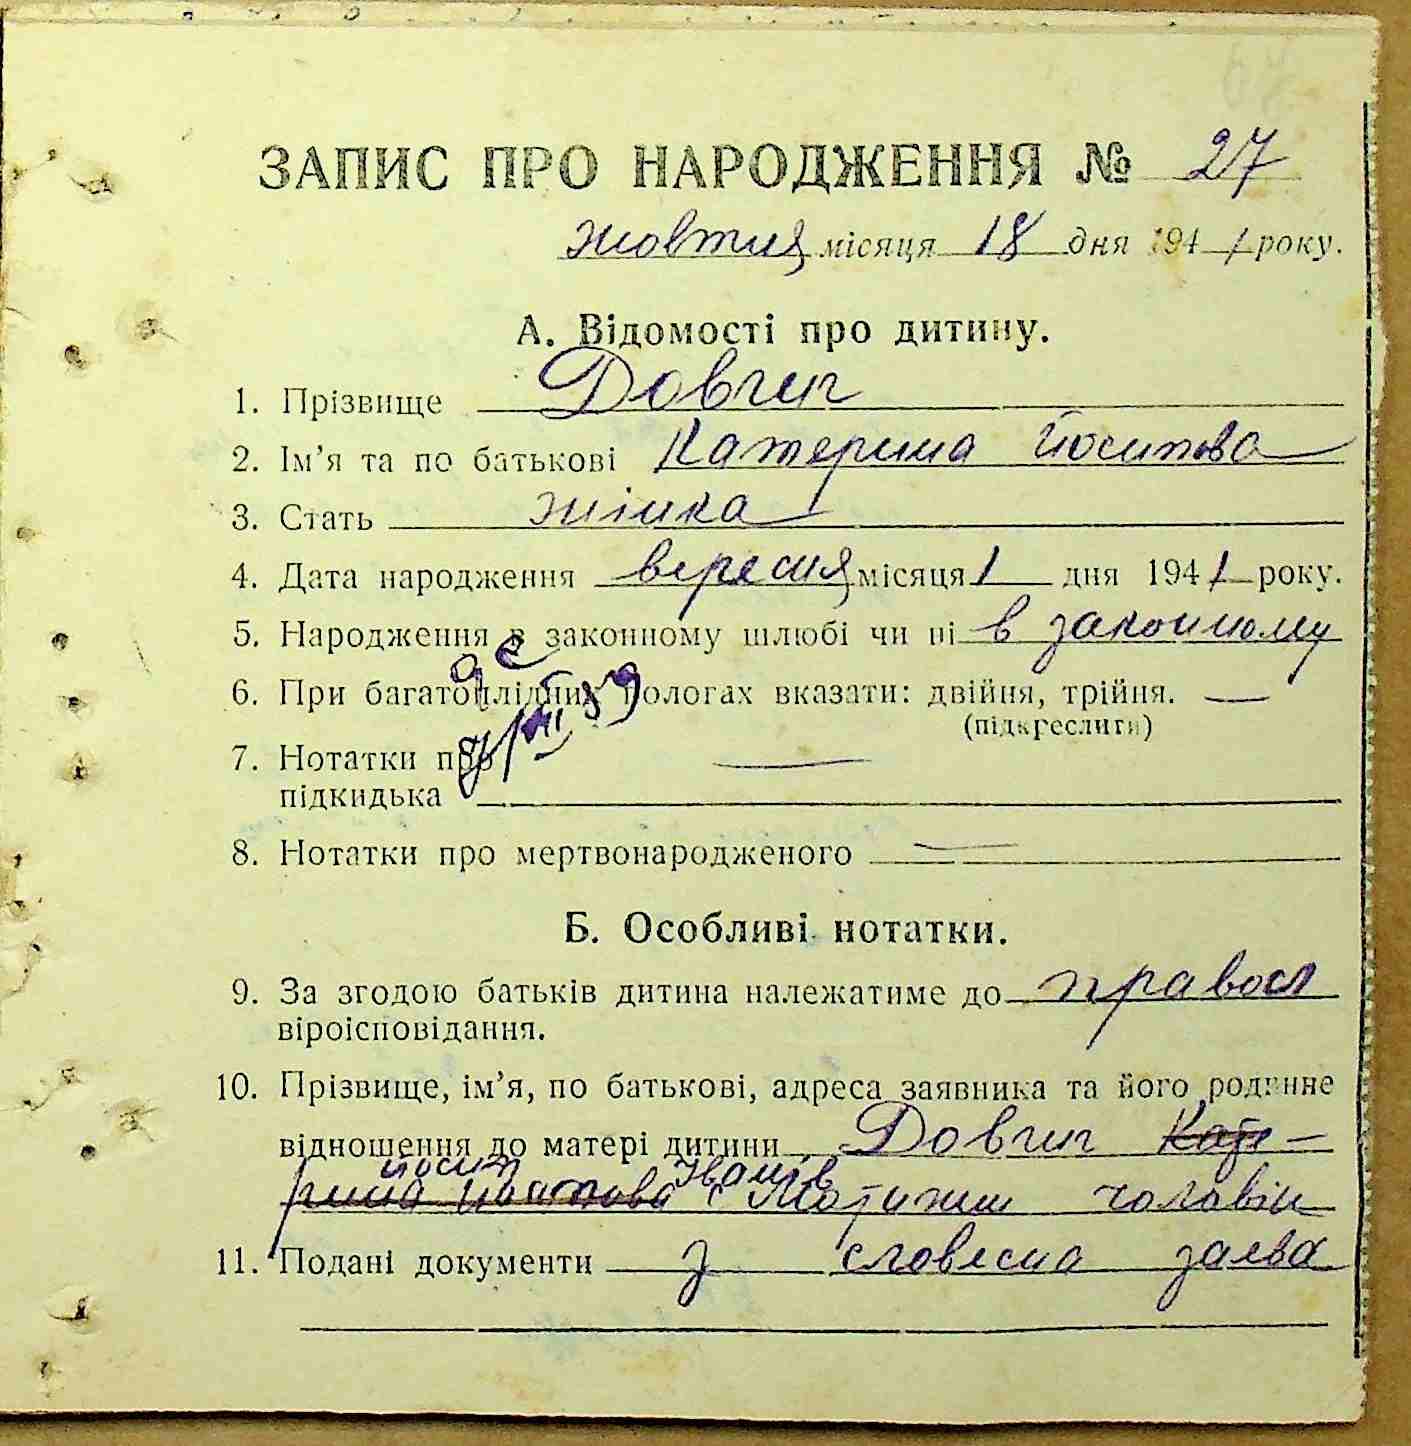 ЗАПИС ПРО НАРОДЖЕННЯ № 27
жовтня місяця 18 дня 1941 року.
А. Відомості про дитину.
1. Прізвище Довгич
2. Ім'я та по батькові Катерина Йосипова
3. Стать жінка
4. Дата народження вересня місяця 1 дня 1941 року.
5. Народження в законному шлюбі чи ні в законному
6. При багатоплідних пологах вказати: двійня, трійня. —
(підкреслити)
7. Нотатки про —
підкидька
8. Нотатки про мертвонародженого —
Б. Особливі нотатки.
9. За згодою батьків дитина належатиме до правосл
віроісповідання.
10. Прізвище, ім'я, по батькові, адреса заявника та його родинне
відношення до матері дитини Довгич Кате-
йосип Іванів
рина Йосипова с чоловік
11. Подані документи з словесна заява